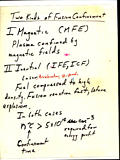 Two Kinds of Fusion Confinement
I Magnetic (MFE)
Plasma confined by
magnetic fields.
II Inertial (IFE, ICF)
Laser
Fuel compressed to high
density, Fusion reaction fast, before
explosion.
In both cases
required for
energy
Confinement
time